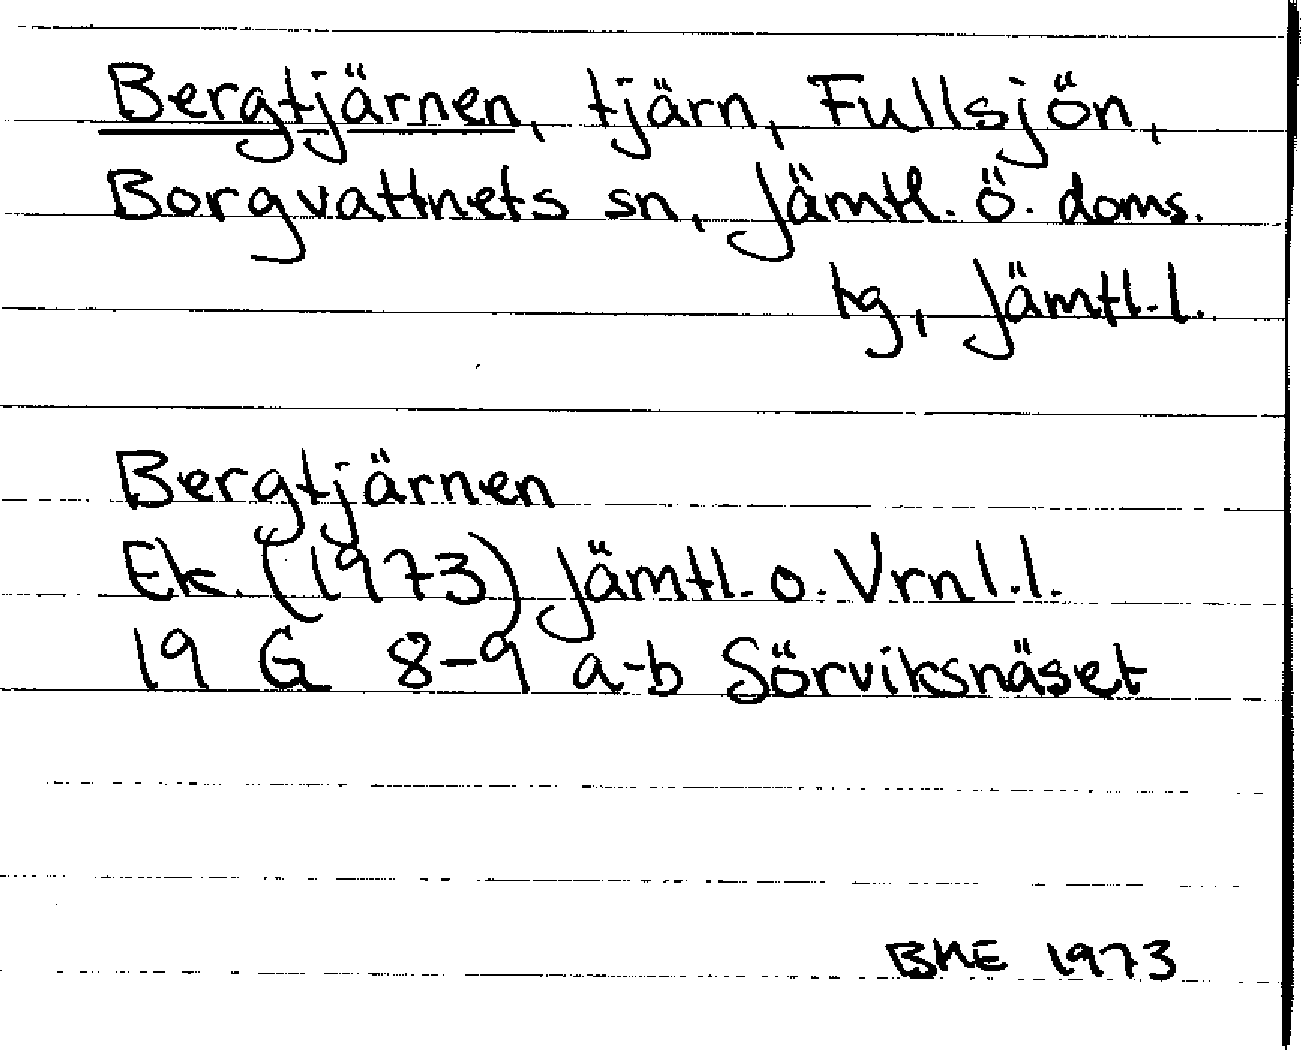 Bergtjärnen, tjärn, Fullsjön,
Borgvattnets sn, Jämtl. ö. doms.
tg, Jämtl.l.
Bergtjärnen
Ek. (1973) Jämtl. o. Vrnl.l.
19 G 8-9 a-b Sörviksnäset
BHE 1973